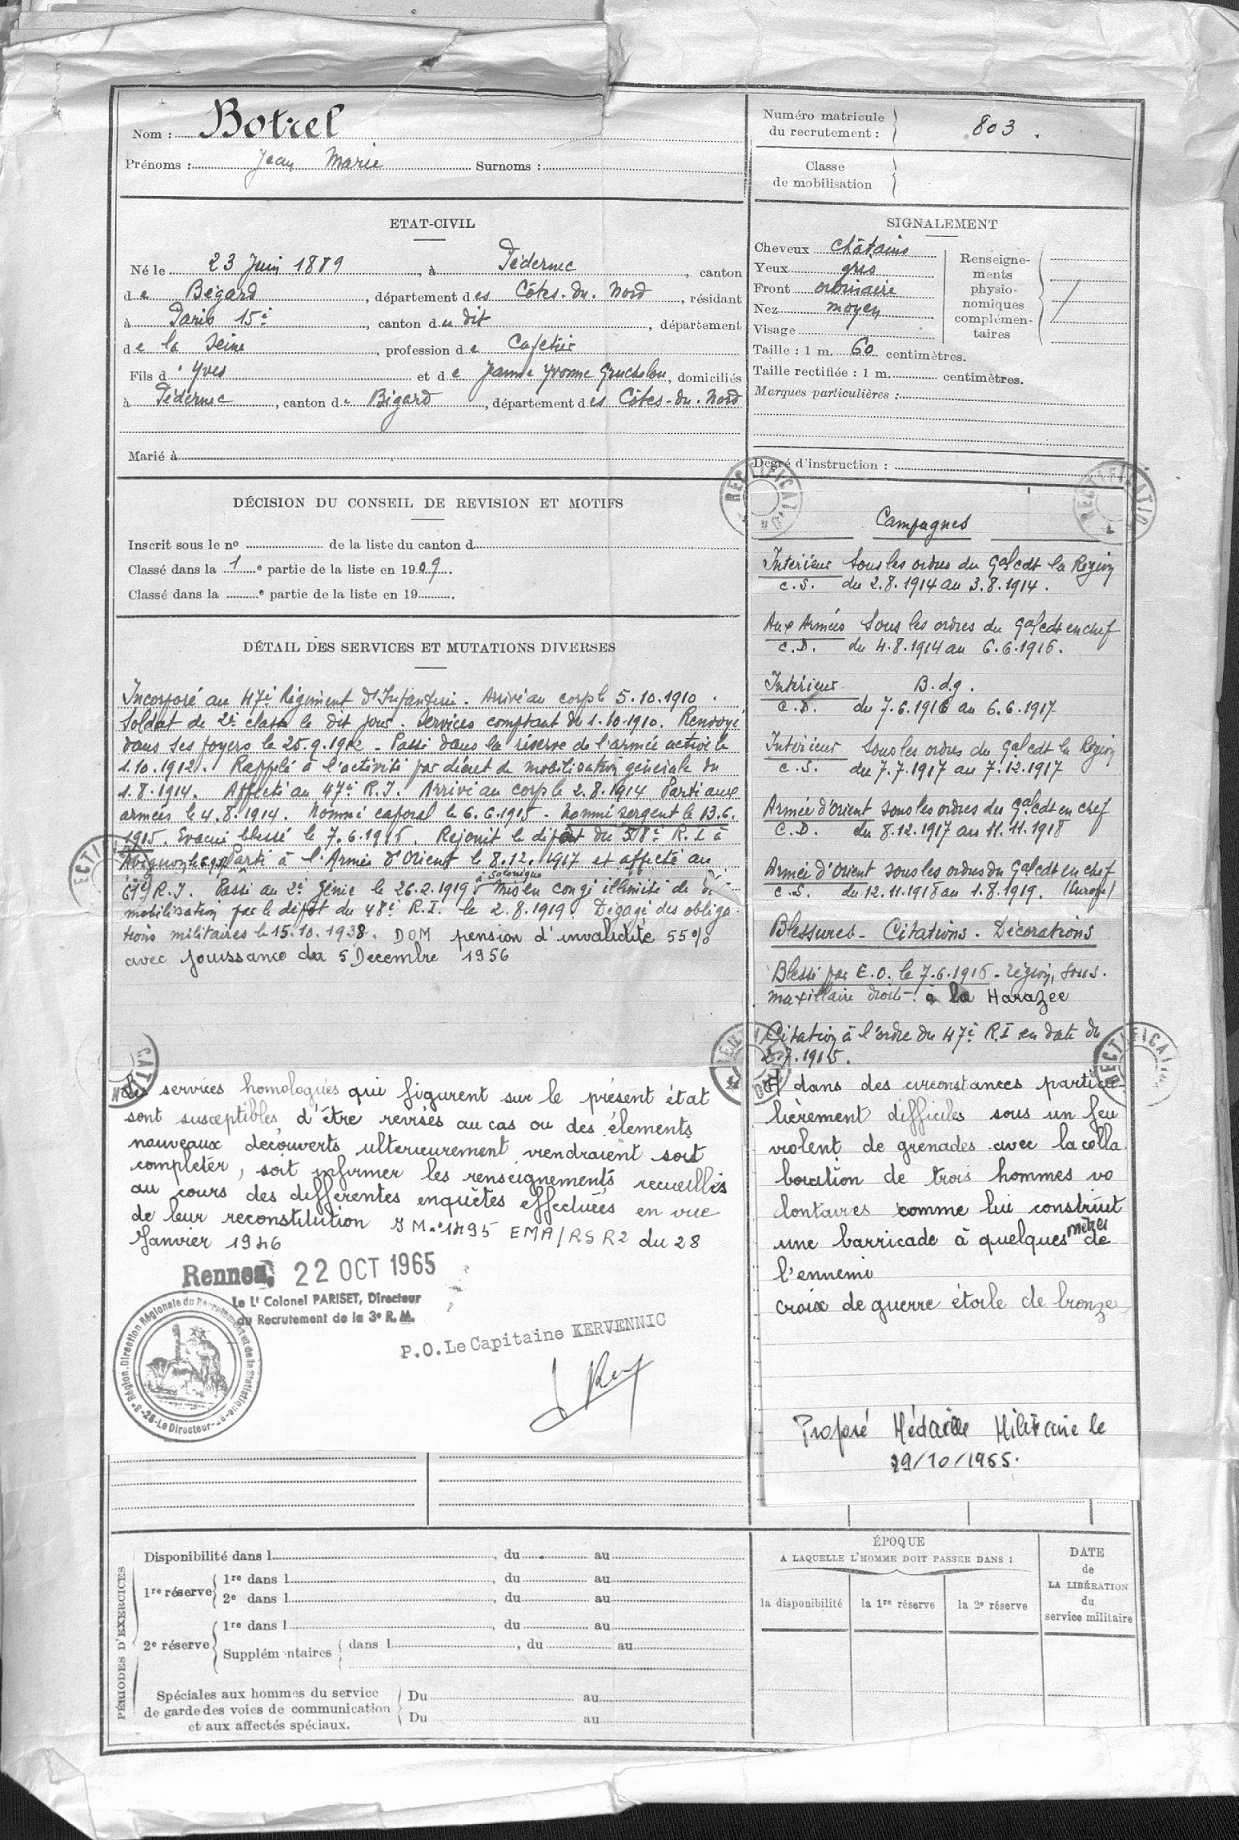 Nom : Botrel
Prénoms : Jean Marie Surnoms :
Numéro matricule du recrutement : 803.
Classe de mobilisation
ETAT-CIVIL
Né le 23 Juin 1889, à Pédernec, canton
de Bégard, département des Côtes-du-Nord, résidant
à Paris 15è, canton du dit, département
de la Seine, profession de Cafetier
Fils d'Yves et de Jeanne Yvonne, domiciliés
à Pédernec, canton de Bégard, département des Côtes-du-Nord
Marié à
SIGNALEMENT
Cheveux châtains
Yeux gris
Front ordinaire
Nez moyen
Visage
Renseignements physionomiques complémentaires
Taille : 1 m. 60 centimètres.
Taille rectifiée : 1 m. centimètres.
Marques particulières :
Degré d'instruction :
DÉCISION DU CONSEIL DE REVISION ET MOTIFS
Inscrit sous le no de la liste du canton d
Classé dans la 1e partie de la liste en 1909.
Classé dans la e partie de la liste en 19
DÉTAIL DES SERVICES ET MUTATIONS DIVERSES
Incorporé au 47è Régiment d'Infanterie. Arrivé au corps le 5.10.1910.
Soldat de 2è classe le dit jour. Services comptant du 1.10.1910. Renvoyé
dans ses foyers le 25.9.1912 - Passé dans la réserve de l'armée active le
1.10.1912. Rappelé à l'activité par décret de mobilisation générale du
1.8.1914. Affecté au 47è R.I. Arrivé au corps le 2.8.1914 Parti aux
armées le 4.8.1914. Nommé caporal le 6.6.1915 - Nommé sergent le 13.6.
1915. Evacué blessé le 7.6.1916 Rejoint le dépôt du 58è R.I. à
Avignon Parti à l'Armée d'Orient le 8.12.1917 et affecté au
R.I. Passé au 2è Génie le 26.2.1919 à Salonique Mis en congé illimité de dé-
mobilisation par le dépôt du 48è R.I. le 2.8.1919. Dégagé des obliga-
tions militaires le 15.10.1938. DOM pension d'invalidité 55%
avec jouissance du 5 Decembre 1956
Les services homologués qui figurent sur le présent état
sont susceptibles d'être revisés au cas ou des élements
nouveaux découverts ulterieurement viendraient soit
completer, soit infirmer les renseignements recueillis
au cours des differentes enquêtes effectuées en vue
de leur reconstitution IM n°1495 EMA/RSR2 du 28
Janvier 1946
Rennes, 22 OCT 1965
Le Lt Colonel PARISET, Directeur
du Recrutement de la 3e R.M.
P.O. Le Capitaine KERVENNIC
Campagnes
Intérieur Sous les ordres du Gal cdt la Région
C.S. du 2.8.1914 au 3.8.1914.
Aux Armées Sous les ordres du Gal cdt en chef
C.D. du 4.8.1914 au 6.6.1916.
Intérieur B.d.g.
C.D. du 7.6.1916 au 6.6.1917
Intérieur Sous les ordres du Gal cdt la Région
C.S. du 7.7.1917 au 7.12.1917
Armée d'Orient sous les ordres du Gal cdt en chef
C.D. du 8.12.1917 au 11.11.1918
Armée d'Orient sous les ordres du Gal cdt en chef
C.S. du 12.11.1918 au 1.8.1919. (Europe)
Blessures - Citations - Décorations
Blessé par E.O. le 7.6.1916 - région, sous-
maxillaire droit - à la Harazee
Citation à l'ordre du 47è R.I en date du
1915.
dans des circonstances particu-
lièrement difficiles sous un feu
violent de grenades avec la colla
boration de trois hommes vo
lontaires comme lui construit
une barricade à quelques mètres de
l'ennemi
croix de guerre étoile de bronze
Proposé Médaille Militaire le
29/10/1965.
PÉRIODES D'EXERCICES
Disponibilité dans l, du au
1re réserve 1re dans l, du au
2e dans l, du au
2e réserve 1re dans l, du au
Supplémentaires dans l, du au
Spéciales aux hommes du service
de garde des voies de communication
et aux affectés spéciaux.
Du au
Du au
ÉPOQUE
A LAQUELLE L'HOMME DOIT PASSER DANS :
la disponibilité la 1re réserve la 2e réserve
DATE
de
LA LIBÉRATION
du
service militaire
RECTIFICATION